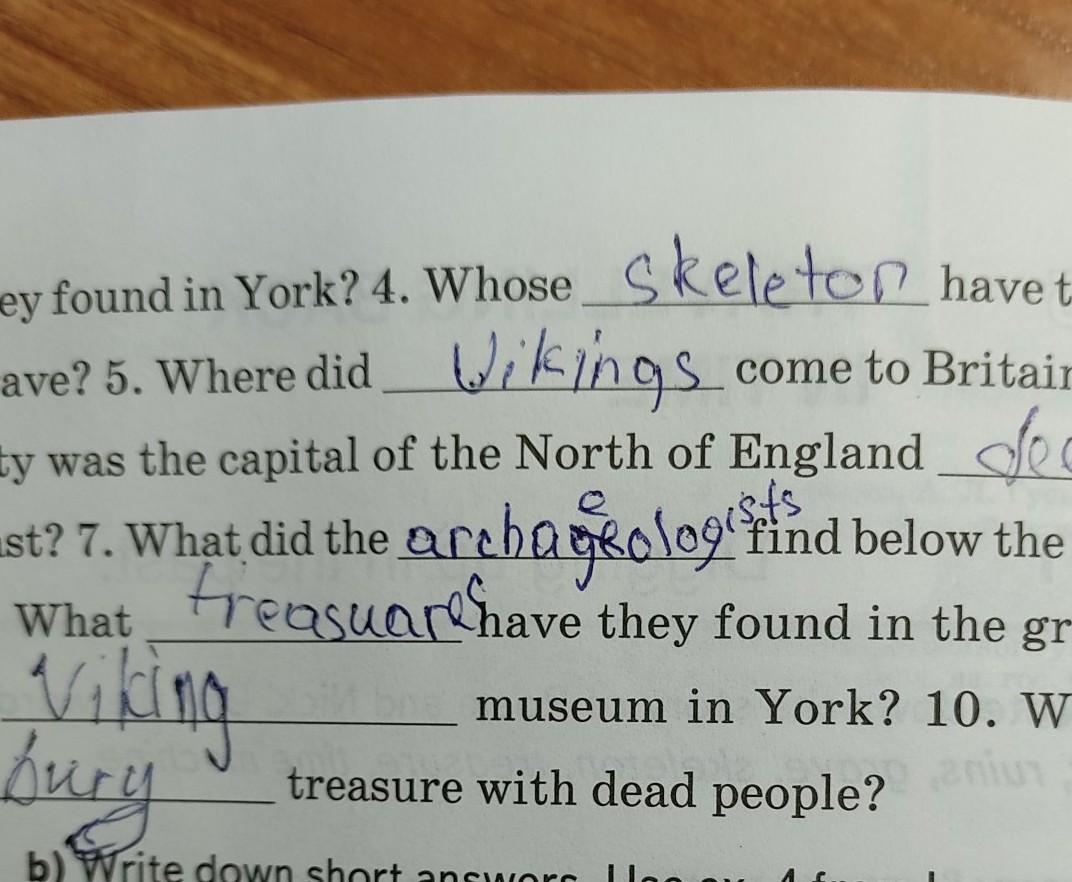 ey found in York? 4. Whose skeleton have t
ave? 5. Where did Vikings come to Britain
ty was the capital of the North of England
st? 7. What did the archaeologists find below the
What treasuares have they found in the gr
Viking museum in York? 10. W
bury treasure with dead people?
b) Write down short answers.